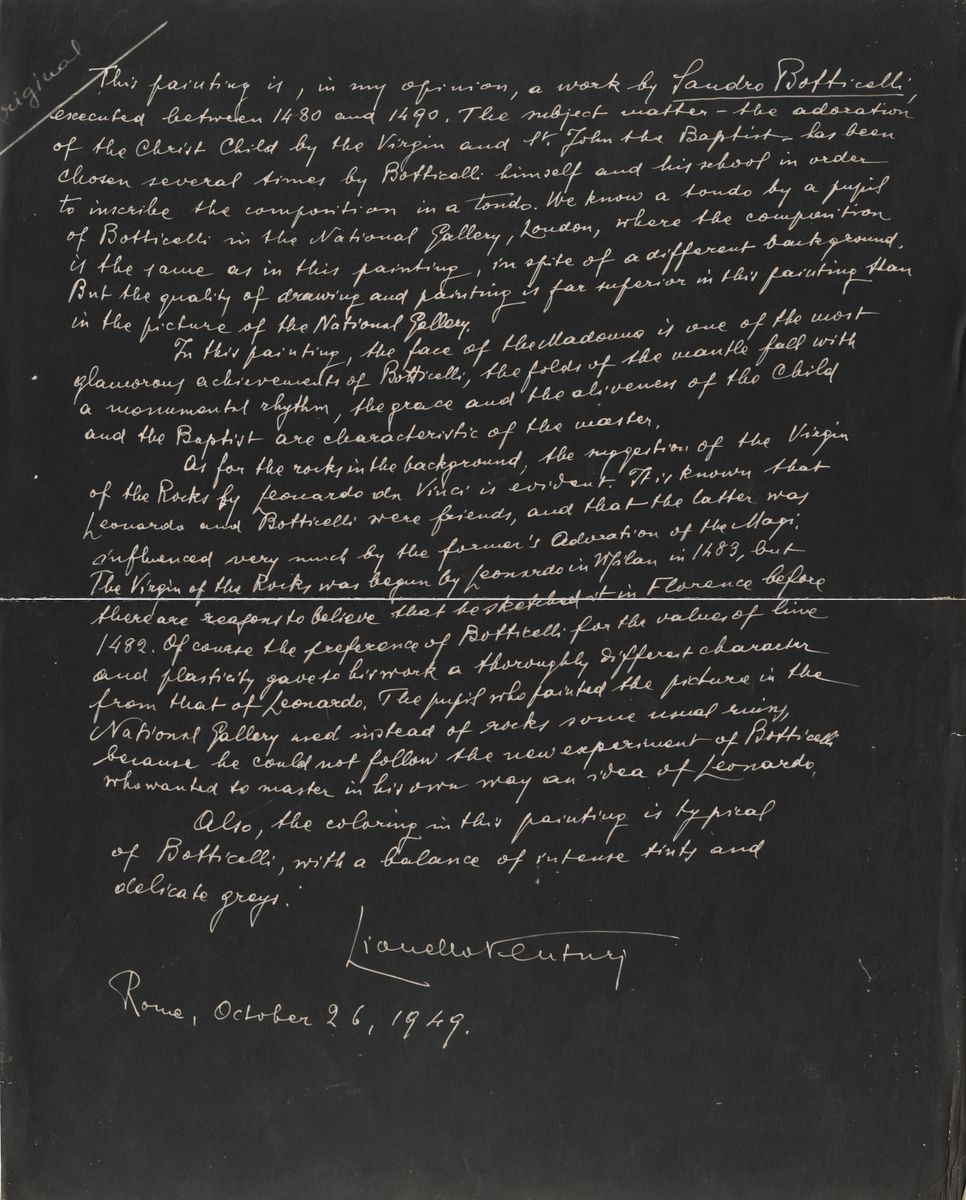 original
This painting is, in my opinion, a work by Sandro Botticelli,
executed between 1480 and 1490. The subject matter – the adoration
of the Christ Child by the Virgin and St. John the Baptist – has been
chosen several times by Botticelli himself and his school in order
to inscribe the composition in a tondo. We know a tondo by a pupil
of Botticelli in the National Gallery, London, where the composition
is the same as in this painting, in spite of a different background.
But the quality of drawing and painting is far superior in this painting than
in the picture of the National Gallery.
In this painting, the face of the Madonna is one of the most
glamorous achievements of Botticelli, the folds of the mantle fall with
a monumental rhythm, the grace and the aliveness of the Child
and the Baptist are characteristic of the master.
As for the rocks in the background, the suggestion of the Virgin
of the Rocks by Leonardo da Vinci is evident. It is known that
Leonardo and Botticelli were friends, and that the latter was
influenced very much by the former's Adoration of the Magi.
The Virgin of the Rocks was begun by Leonardo in Milan in 1483, but
there are reasons to believe that he sketched it in Florence before
1482. Of course the preference of Botticelli for the values of line
and plasticity gave to his work a thoroughly different character
from that of Leonardo. The pupil who painted the picture in the
National Gallery used instead of rocks some usual ruins,
because he could not follow the new experiment of Botticelli
who wanted to master in his own way an idea of Leonardo.
Also, the coloring in this painting is typical
of Botticelli, with a balance of intense tints and
delicate greys.
Lionello Venturi
Rome, October 26, 1949.